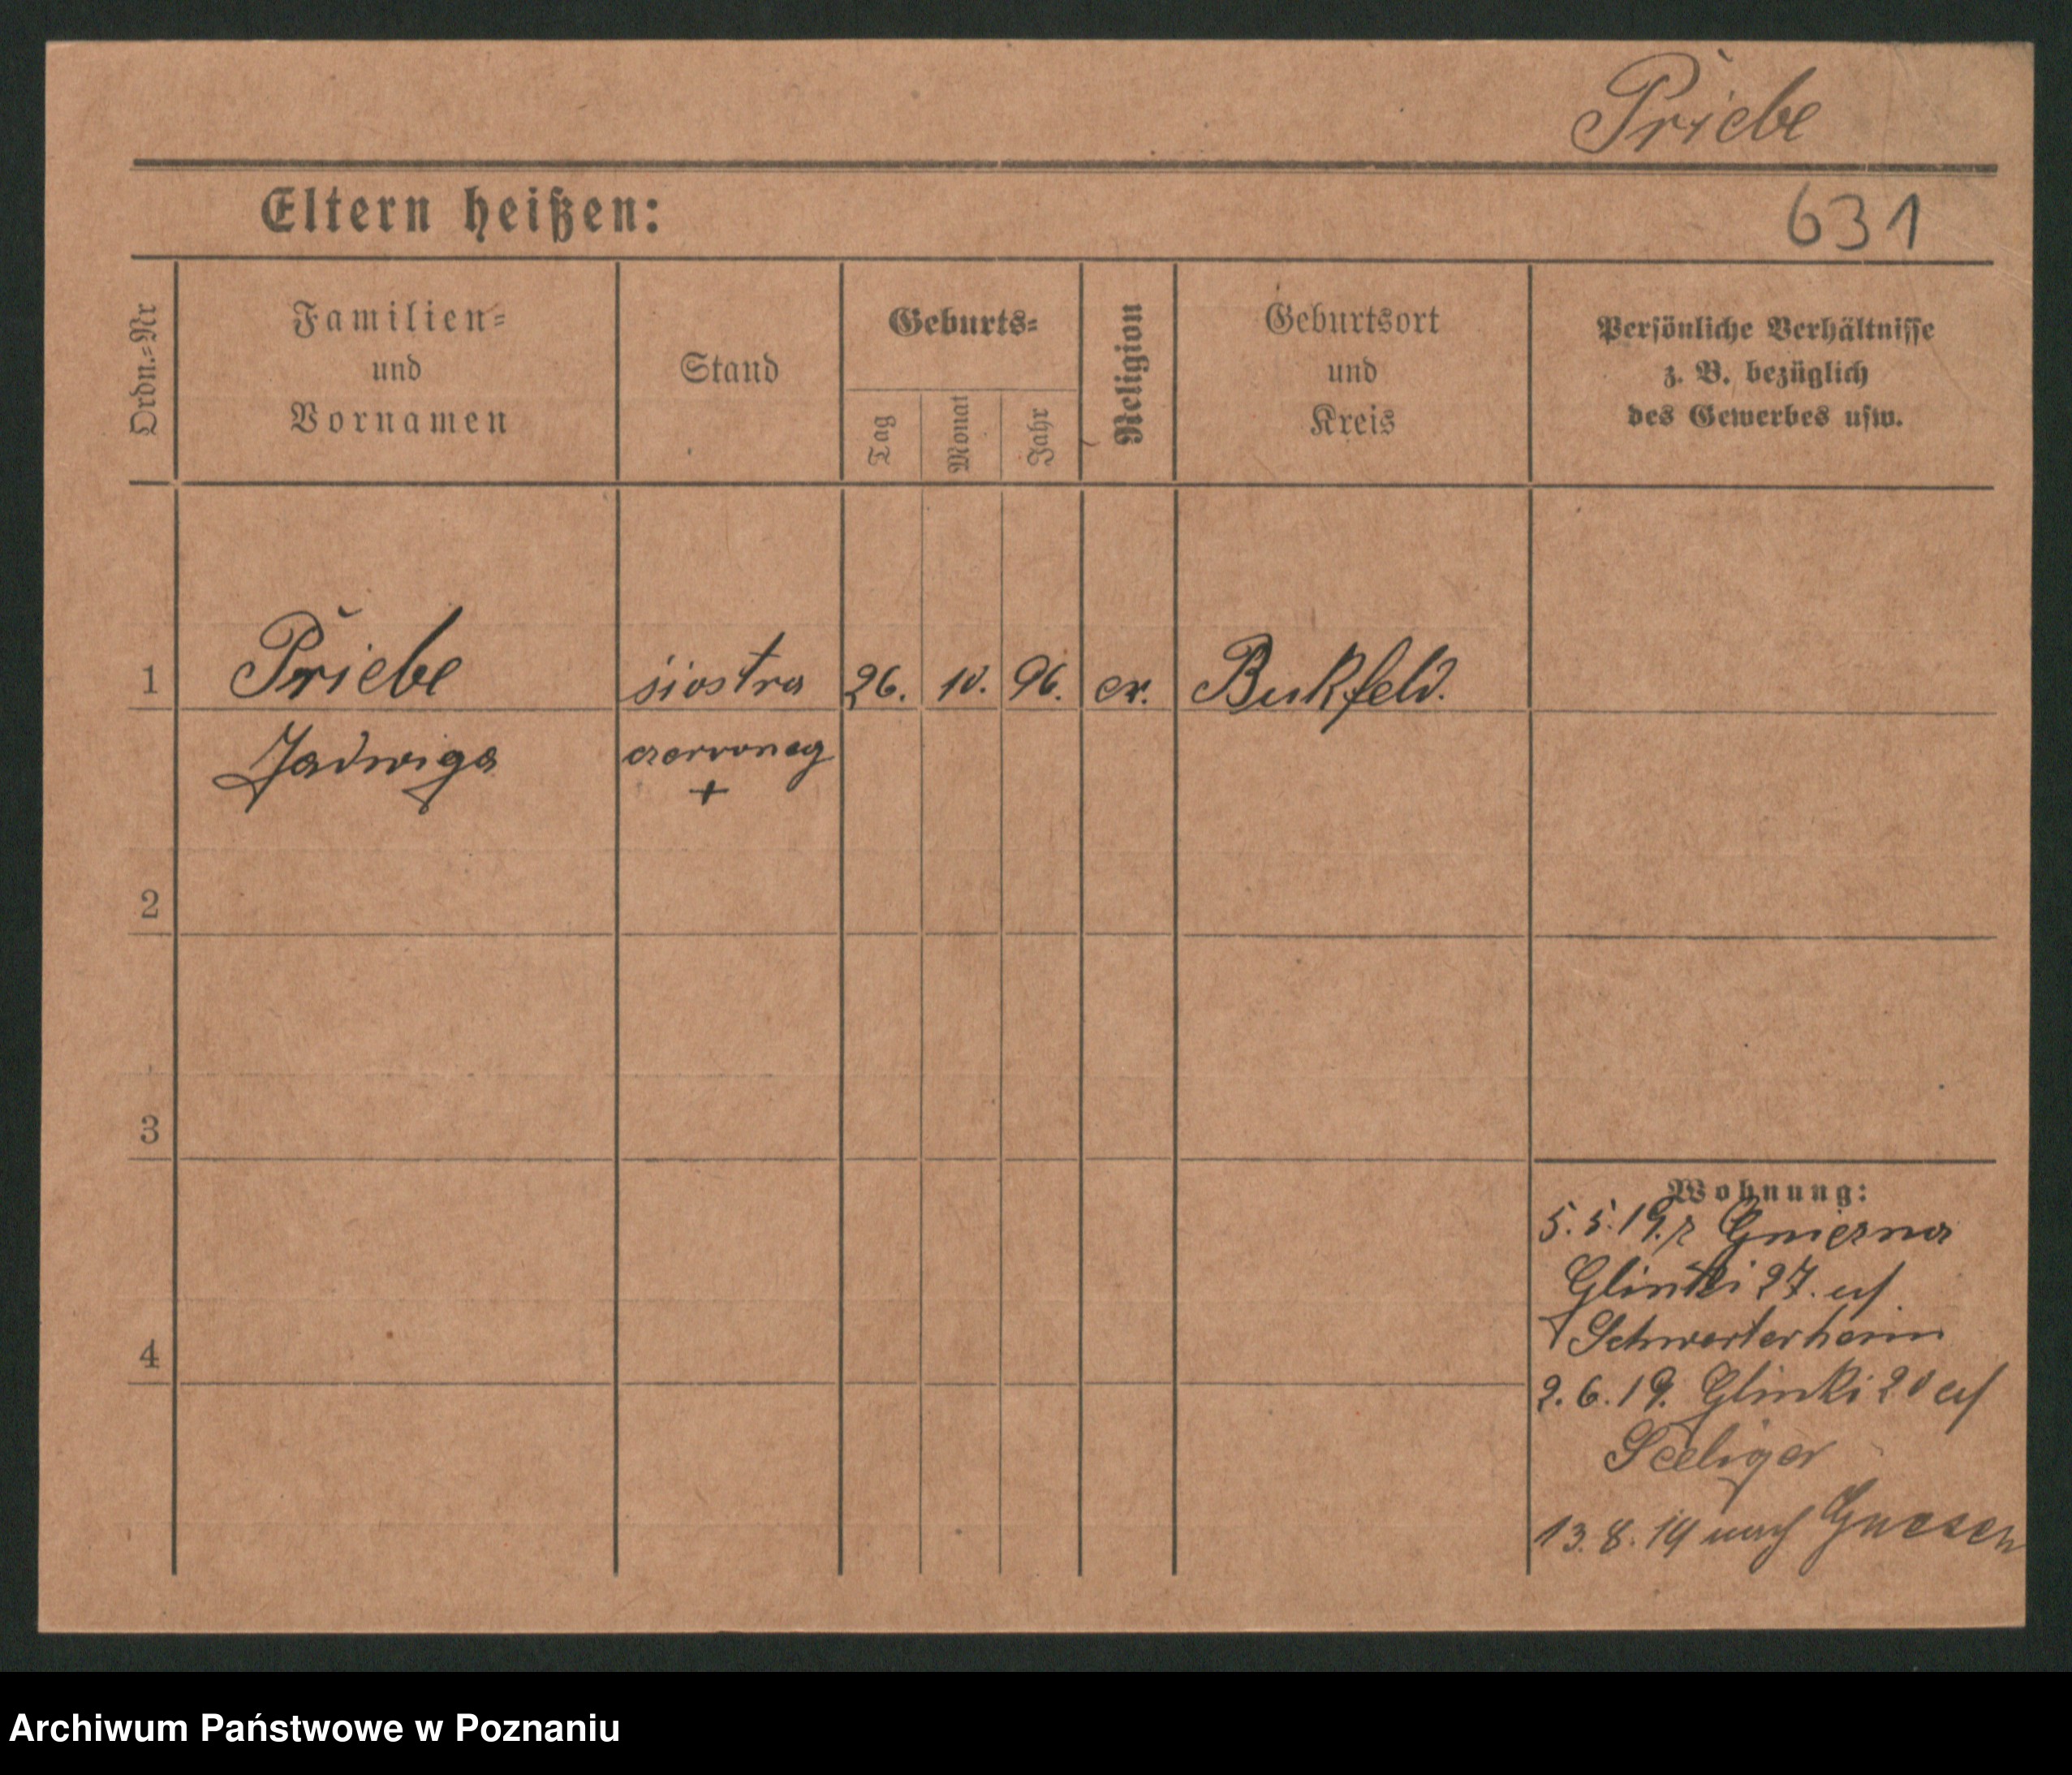 Priebe
Eltern heißen:
631
Ordn.=Nr
Familien=
und
Vornamen
Stand
Geburts=
Tag
Monat
Jahr
Religion
Geburtsort
und
Kreis
Persönliche Verhältnisse
z. B. bezüglich
des Gewerbes usw.
1
Priebe
siostra
26.
10.
96.
ew.
Bukfeld.
Jadwiga
+
2
3
4
Wohnung:
5.5.19. z Gniezna
Glinki 27.
Schwesterheim
2.6.19. Glinki 20
Seeliger
13.8.19 nach Gnesen
Archiwum Państwowe w Poznaniu